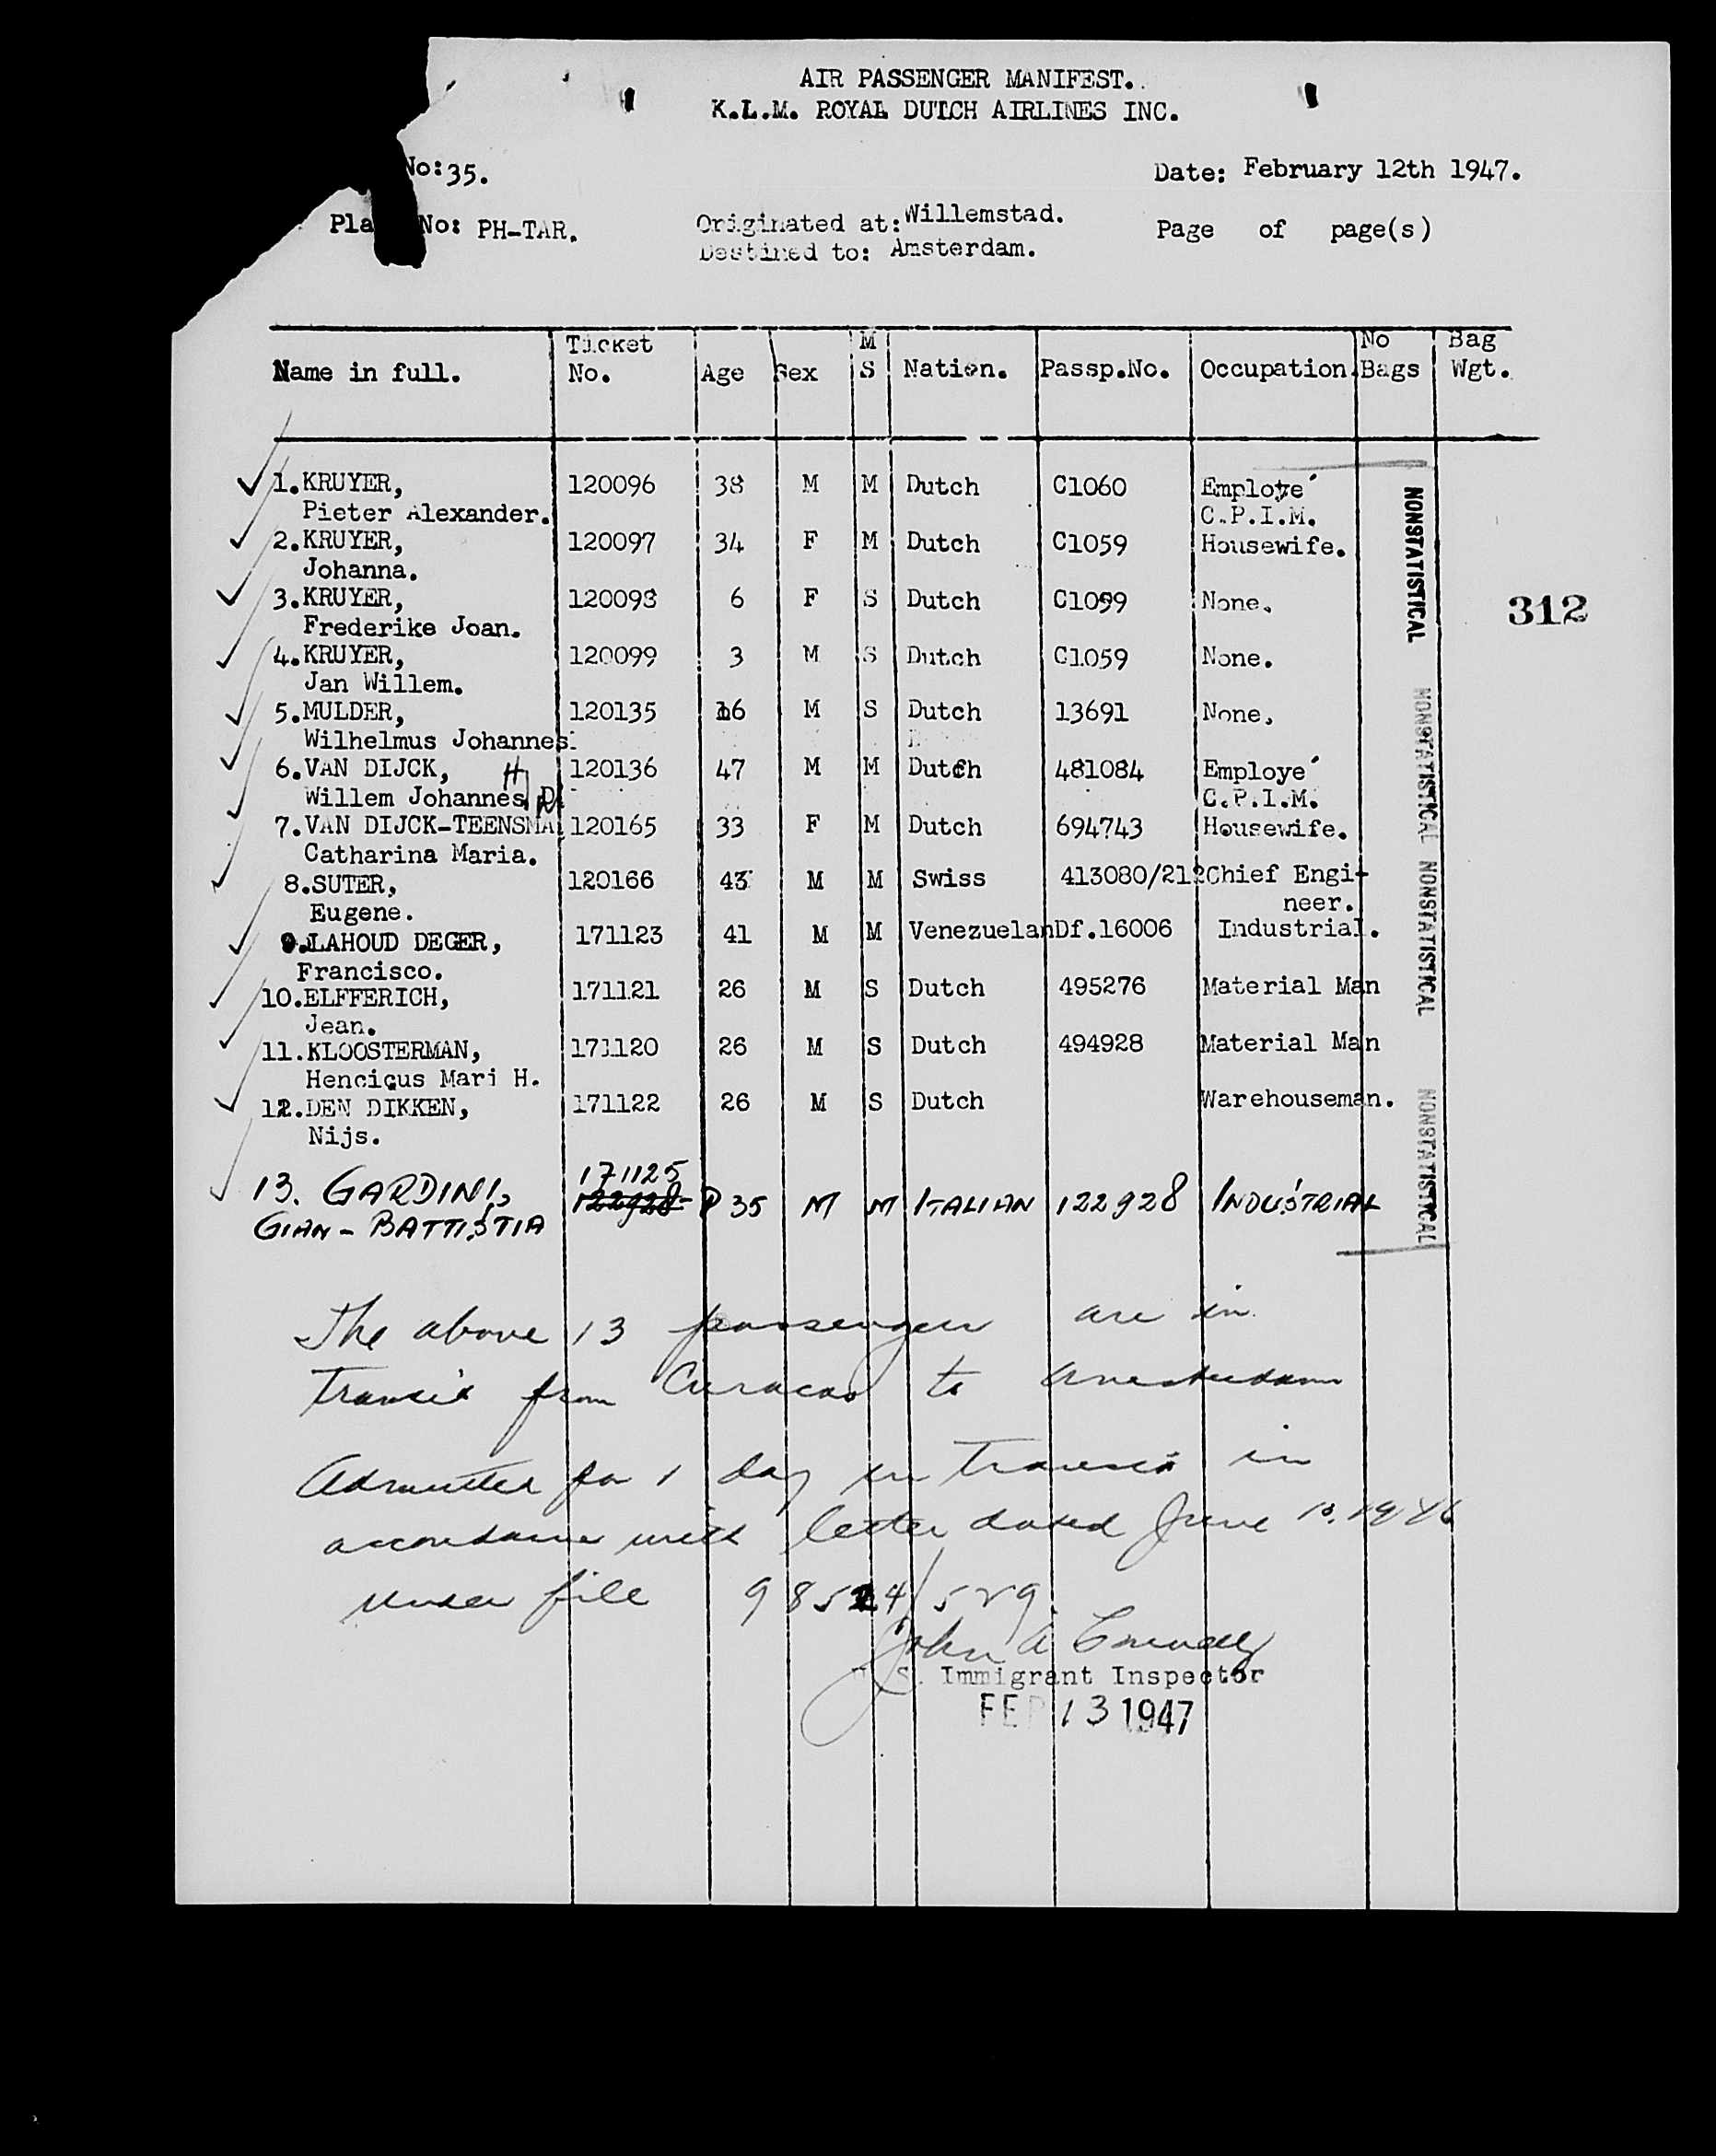 AIR PASSENGER MANIFEST.
K.L.M. ROYAL DUTCH AIRLINES INC.
No:35. Date: February 12th 1947.
Pla No: PH-TAR. Originated at: Willemstad. Page of page(s)
Destined to: Amsterdam.
Name in full. Ticket No. Age Sex M S Nation. Passp.No. Occupation. No Bags Bag Wgt.
1.KRUYER, 120096 38 M M Dutch C1060 Employe´
Pieter Alexander. C.P.I.M.
2.KRUYER, 120097 34 F M Dutch C1059 Housewife.
Johanna.
3.KRUYER, 120098 6 F S Dutch C1059 None.
Frederike Joan.
4.KRUYER, 120099 3 M S Dutch C1059 None.
Jan Willem.
5.MULDER, 120135 16 M S Dutch 13691 None.
Wilhelmus Johannes.
6.VAN DIJCK, H 120136 47 M M Dutch 481084 Employe´
Willem Johannes C.P.I.M.
7.VAN DIJCK-TEENSMA 120165 33 F M Dutch 694743 Housewife.
Catharina Maria.
8.SUTER, 120166 43 M M Swiss 413080/212 Chief Engi-
Eugene. neer.
9.LAHOUD DEGER, 171123 41 M M Venezuelan Df.16006 Industrial.
Francisco.
10.ELFFERICH, 171121 26 M S Dutch 495276 Material Man
Jean.
11.KLOOSTERMAN, 171120 26 M S Dutch 494928 Material Man
Hencicus Mari H.
12.DEN DIKKEN, 171122 26 M S Dutch Warehouseman.
Nijs.
171125
13. GARDINI, 122928 35 M M ITALIAN 122928 INDUSTRIAL
GIAN-BATTISTIA
NONSTATISTICAL
NONSTATISTICAL
NONSTATISTICAL
NONSTATISTICAL
312
The above 13 passengers are in
Transit from Curacao to Amsterdam
Admitted for 1 day in Transit in
accordance with letter dated June 10. 1946
under file 98524/529.
John A
U.S. Immigrant Inspector
FEB 13 1947